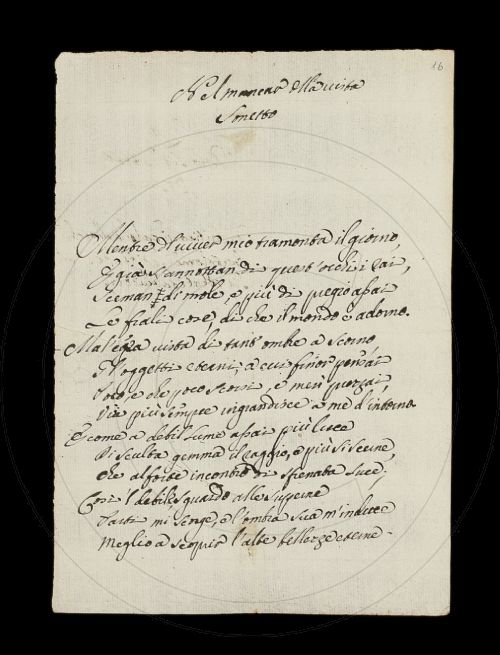 16
Nel mancar della vista
Sonetto
Mentre del viver mio tramonta il giorno,
E già s'annottan di quest'occhi i rai,
Sceman di mole, e più di pregio assai
Le frali cose, di che il mondo è adorno.
Ma l'egra vista di tant'ombre a scorno,
Gli oggetti eterni, a cui finor pensai
Poco, e che poco scorsi, e men prezzai,
Via più sempre ingrandisce a me d'intorno.
E come a debil lume assai più luce
Di sculta gemma il raggio, e più si scerne,
Che al forte incontro di sfrenata luce;
Così 'l debil sguardo alle superne
Parti mi serge, e l'ombra sua m'induce
Meglio a scoprir l'alte bellezze eterne.